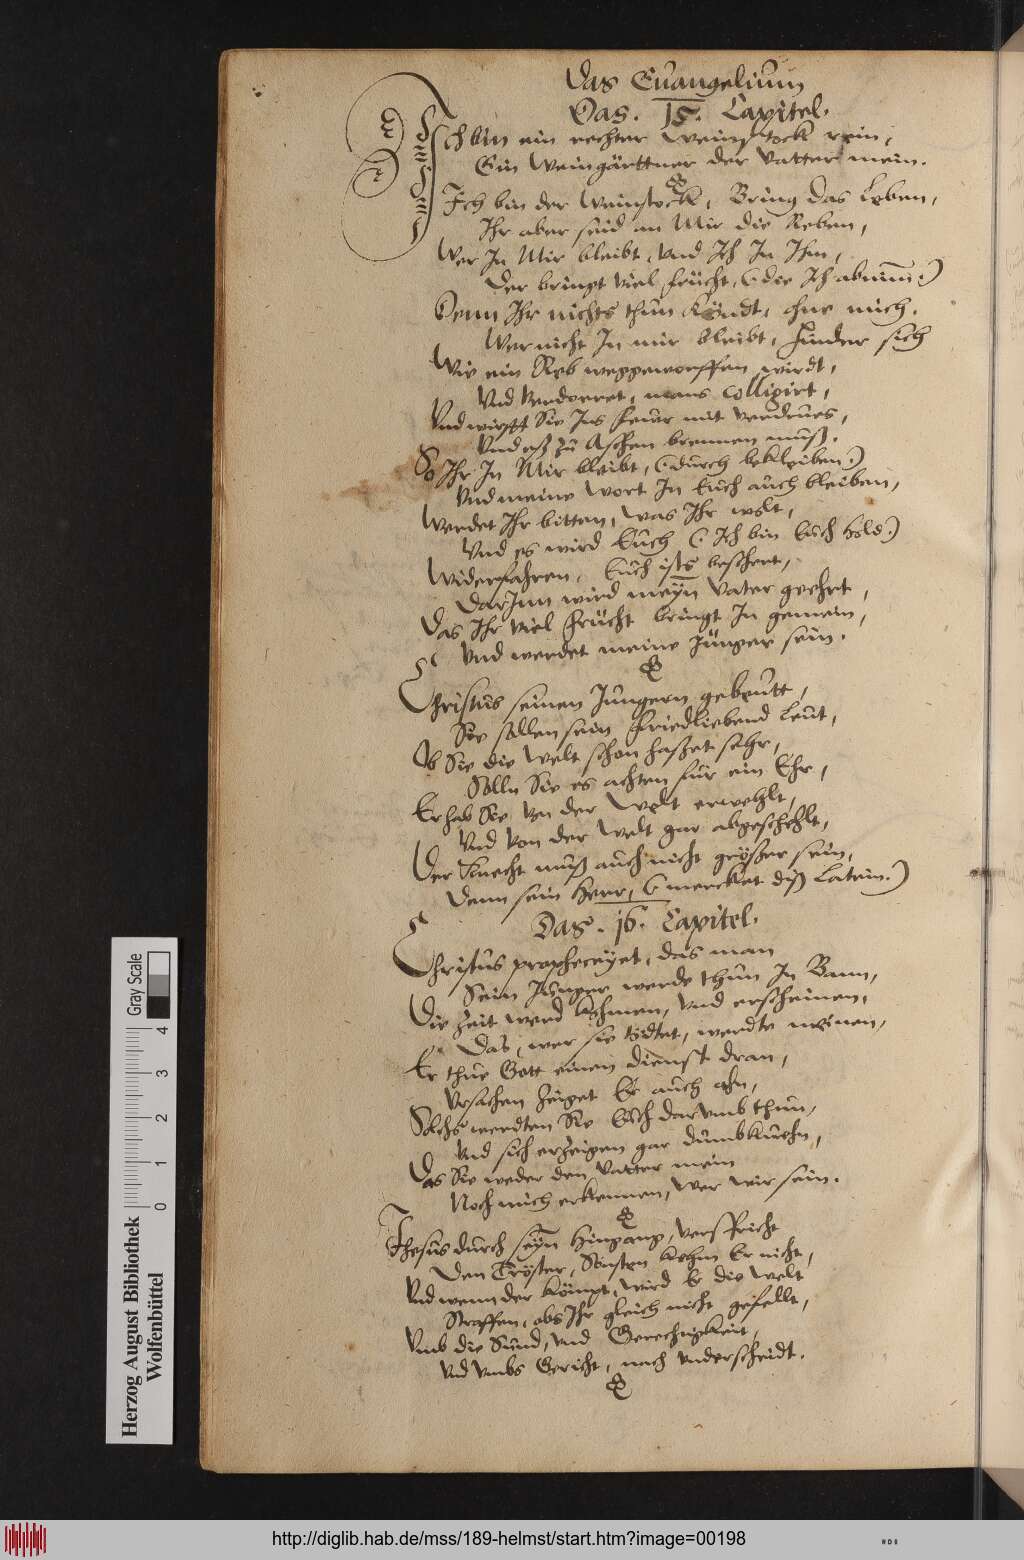 Das Euangelium
Das . 15. Capitel.
Ich bin ein rechter Weinstock rein,
Ein Weingärttner der Vatter mein.
Ich bin der Weinstock, Bring das Leben,
Ihr aber seid an Mir die Reben,
Wer In Mir bleibt, Vnd Ich In Ihm,
Der bringt viel frücht, (die Ich abnim.)
Denn Ihr nichts thun köndt, ohne mich.
Wer nicht In mir bleibt, hinder sich
Wie ein Reb weggeworffen wirdt,
Vnd verdorret, mans colligirt,
Vnd wirfft Sie Ins feür mit
Vnd zu Aschen brennen muß.
So Ihr In Mir bleibt, (durch bekleiben.)
Vnd meine Wort In Euch auch bleiben,
Werdet Ihr bitten, was Ihr wolt,
Vnd es wird Euch (Ich bin Euch hold.)
Widerfahren, Euch ists beschert,
Darinn wird meyn Vater geehrt,
Das Ihr viel frücht bringt In gemein,
Vnd werdet meine Jünger sein.
Christus seinen Jüngern gebeutt,
Sie sollen sein friedliebend Leut,
Ob Sie die Welt schon haßet sehr,
Solln Sie es achten für ein Ehr,
Er hab Sie von der Welt erwehlt,
Vnd von der Welt gar abgeschehlt,
Der Knecht muß auch nicht größer sein,
Denn sein Herr, (mercket diß Latein.)
Das . 16. Capitel.
Christus propheceyet, das man
Sein Jünger werde thun In Bann,
Die Zeit werd kohmen, vnd erscheinen,
Das, wer sie tödtet, werde meinen,
Er thue Gott einen dienst dran,
Vrsachen zeiget Er auch ahn,
Solchs werdten Sie Euch darvmb thun,
Vnd sich erzeigen gar dumbkuehn,
Das Sie weder den Vatter mein
Noch mich erkennen, wer wir sein.
Jhesus durch seyn Hingang, verspricht
Den Tröster, Sonsten kehm Er nicht,
Vnd wenn der kömpt, wird Er die Welt
Straffen, obs Ihr gleich nicht gefellt,
Vmb die Sünd, vnd Gerechtigkeit,
Vnd vmbs Gericht, nach vnderscheidt.
Herzog August Bibliothek
Wolfenbüttel
Gray Scale
0 1 2 3 4
http://diglib.hab.de/mss/189-helmst/start.htm?image=00198